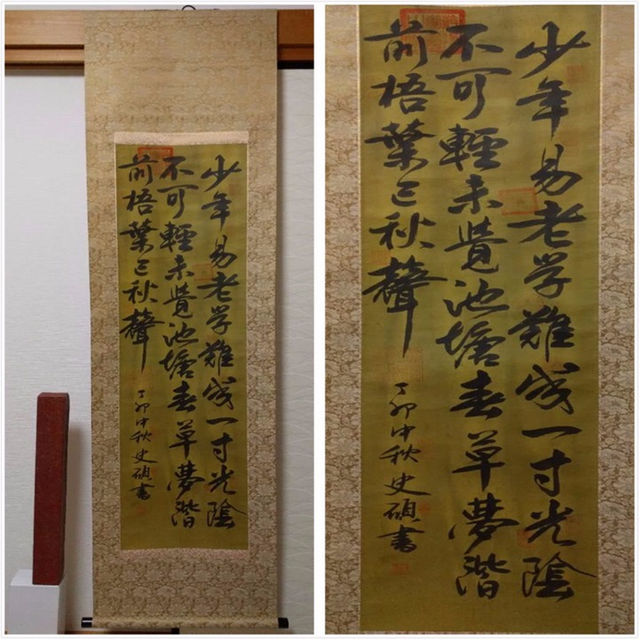 少年易老学難成一寸光陰
不可輕未覺池塘春草夢階
前梧葉已秋聲
丁卯中秋史碩書
少年易老学難成一寸光陰
不可輕未覺池塘春草夢階
前梧葉已秋聲
丁卯中秋史碩書